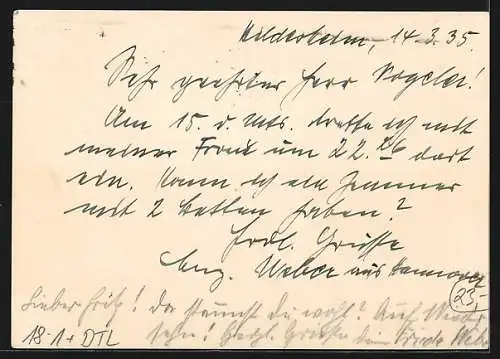 Hildesheim, 14.3.35.
Sehr geehrter Herr Vogeler!
Am 15. d. Mts. treffe ich mit
meiner Frau um 22.26 dort
ein. Kann ich ein Zimmer
mit 2 Betten haben?
Frdl. Grüsse
Aug. Weber aus Hannover
25,-
Lieber Fritz! Da staunst du wohl? Auf Wieder
sehn! Herzl. Grüsse dein Frieda Web
18-1+ DTL